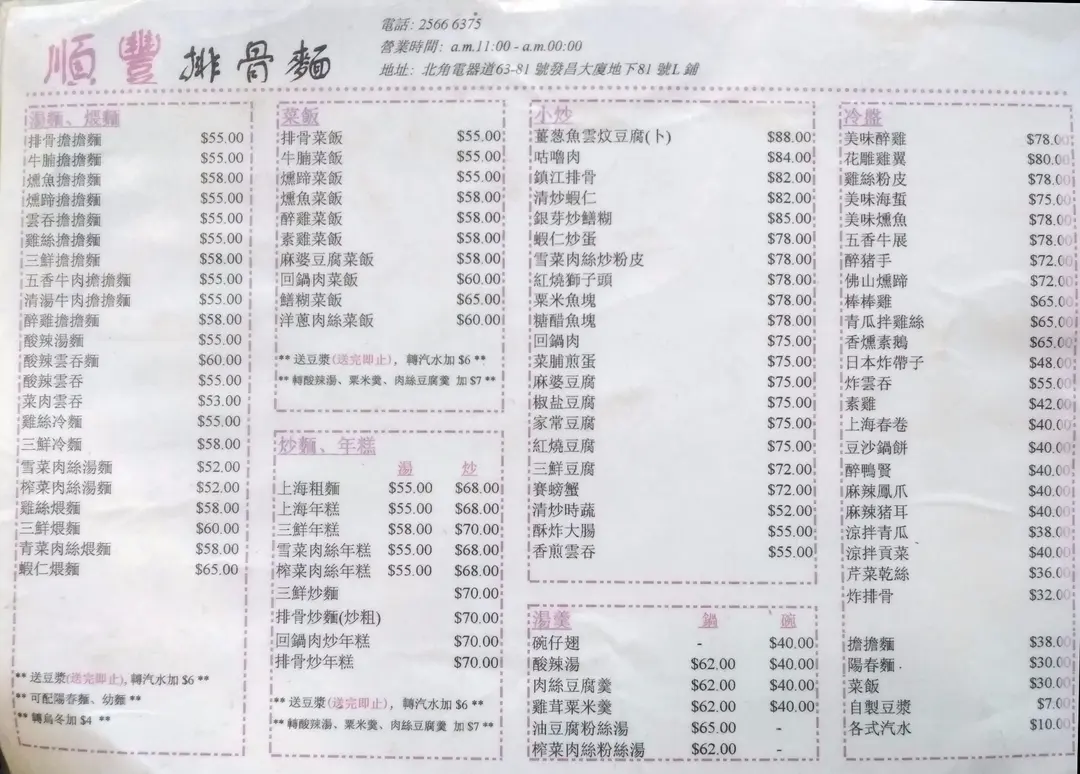 順豐排骨麵
電話: 2566 6375
營業時間: a.m.11:00 - a.m.00:00
地址: 北角電器道63-81 號發昌大廈地下81 號L 鋪
湯麵、煨麵
排骨擔擔麵 $55.00
牛腩擔擔麵 $55.00
燻魚擔擔麵 $58.00
燻蹄擔擔麵 $55.00
雲吞擔擔麵 $55.00
雞絲擔擔麵 $55.00
三鮮擔擔麵 $58.00
五香牛肉擔擔麵 $55.00
清湯牛肉擔擔麵 $55.00
醉雞擔擔麵 $58.00
酸辣湯麵 $55.00
酸辣雲吞麵 $60.00
酸辣雲吞 $55.00
菜肉雲吞 $53.00
雞絲冷麵 $55.00
三鮮冷麵 $58.00
雪菜肉絲湯麵 $52.00
榨菜肉絲湯麵 $52.00
雞絲煨麵 $58.00
三鮮煨麵 $60.00
青菜肉絲煨麵 $58.00
蝦仁煨麵 $65.00
** 送豆漿(送完即止), 轉汽水加 $6 **
** 可配陽春麵、幼麵 **
** 轉烏冬加 $4 **
菜飯
排骨菜飯 $55.00
牛腩菜飯 $55.00
燻蹄菜飯 $55.00
燻魚菜飯 $58.00
醉雞菜飯 $58.00
素雞菜飯 $58.00
麻婆豆腐菜飯 $58.00
回鍋肉菜飯 $60.00
鱔糊菜飯 $65.00
洋蔥肉絲菜飯 $60.00
** 送豆漿(送完即止), 轉汽水加 $6 **
** 轉酸辣湯、粟米羹、肉絲豆腐羹 加 $7 **
炒麵、年糕
湯 炒
上海粗麵 $55.00 $68.00
上海年糕 $55.00 $68.00
三鮮年糕 $58.00 $70.00
雪菜肉絲年糕 $55.00 $68.00
榨菜肉絲年糕 $55.00 $68.00
三鮮炒麵 $70.00
排骨炒麵(炒粗) $70.00
回鍋肉炒年糕 $70.00
排骨炒年糕 $70.00
** 送豆漿(送完即止), 轉汽水加 $6 **
** 轉酸辣湯、粟米羹、肉絲豆腐羹 加 $7 **
小炒
薑葱魚雲炆豆腐(卜) $88.00
咕嚕肉 $84.00
鎮江排骨 $82.00
清炒蝦仁 $82.00
銀芽炒鱔糊 $85.00
蝦仁炒蛋 $78.00
雪菜肉絲炒粉皮 $78.00
紅燒獅子頭 $78.00
粟米魚塊 $78.00
糖醋魚塊 $78.00
回鍋肉 $75.00
菜脯煎蛋 $75.00
麻婆豆腐 $75.00
椒盐豆腐 $75.00
家常豆腐 $75.00
紅燒豆腐 $75.00
三鮮豆腐 $72.00
賽螃蟹 $72.00
清炒時蔬 $52.00
酥炸大腸 $55.00
香煎雲吞 $55.00
湯羹 鍋 碗
碗仔翅 - $40.00
酸辣湯 $62.00 $40.00
肉絲豆腐羹 $62.00 $40.00
雞茸粟米羹 $62.00 $40.00
油豆腐粉絲湯 $65.00 -
榨菜肉絲粉絲湯 $62.00 -
冷盤
美味醉雞 $78.00
花雕雞翼 $80.00
雞絲粉皮 $78.00
美味海蜇 $75.00
美味燻魚 $78.00
五香牛展 $78.00
醉豬手 $72.00
佛山燻蹄 $72.00
棒棒雞 $65.00
青瓜拌雞絲 $65.00
香燻素鵝 $65.00
日本炸帶子 $48.00
炸雲吞 $55.00
素雞 $42.00
上海春卷 $40.00
豆沙鍋餅 $40.00
醉鴨腎 $40.00
麻辣鳳爪 $40.00
麻辣猪耳 $40.00
涼拌青瓜 $38.00
涼拌貢菜 $40.00
芹菜乾絲 $36.00
炸排骨 $32.00
擔擔麵 $38.00
陽春麵. $30.00
菜飯 $30.00
自製豆漿 $7.00
各式汽水 $10.00